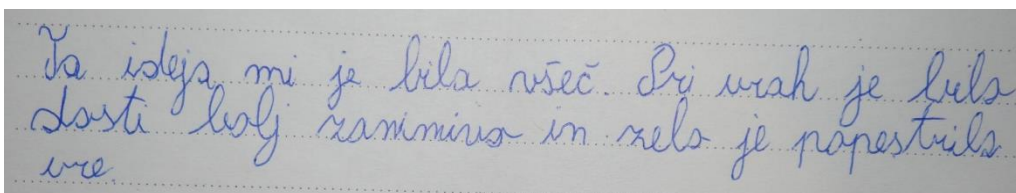 Ta ideja mi je bila všeč. Pri urah je bilo
dosti bolj zanimivo in zelo je popestrilo
ure.